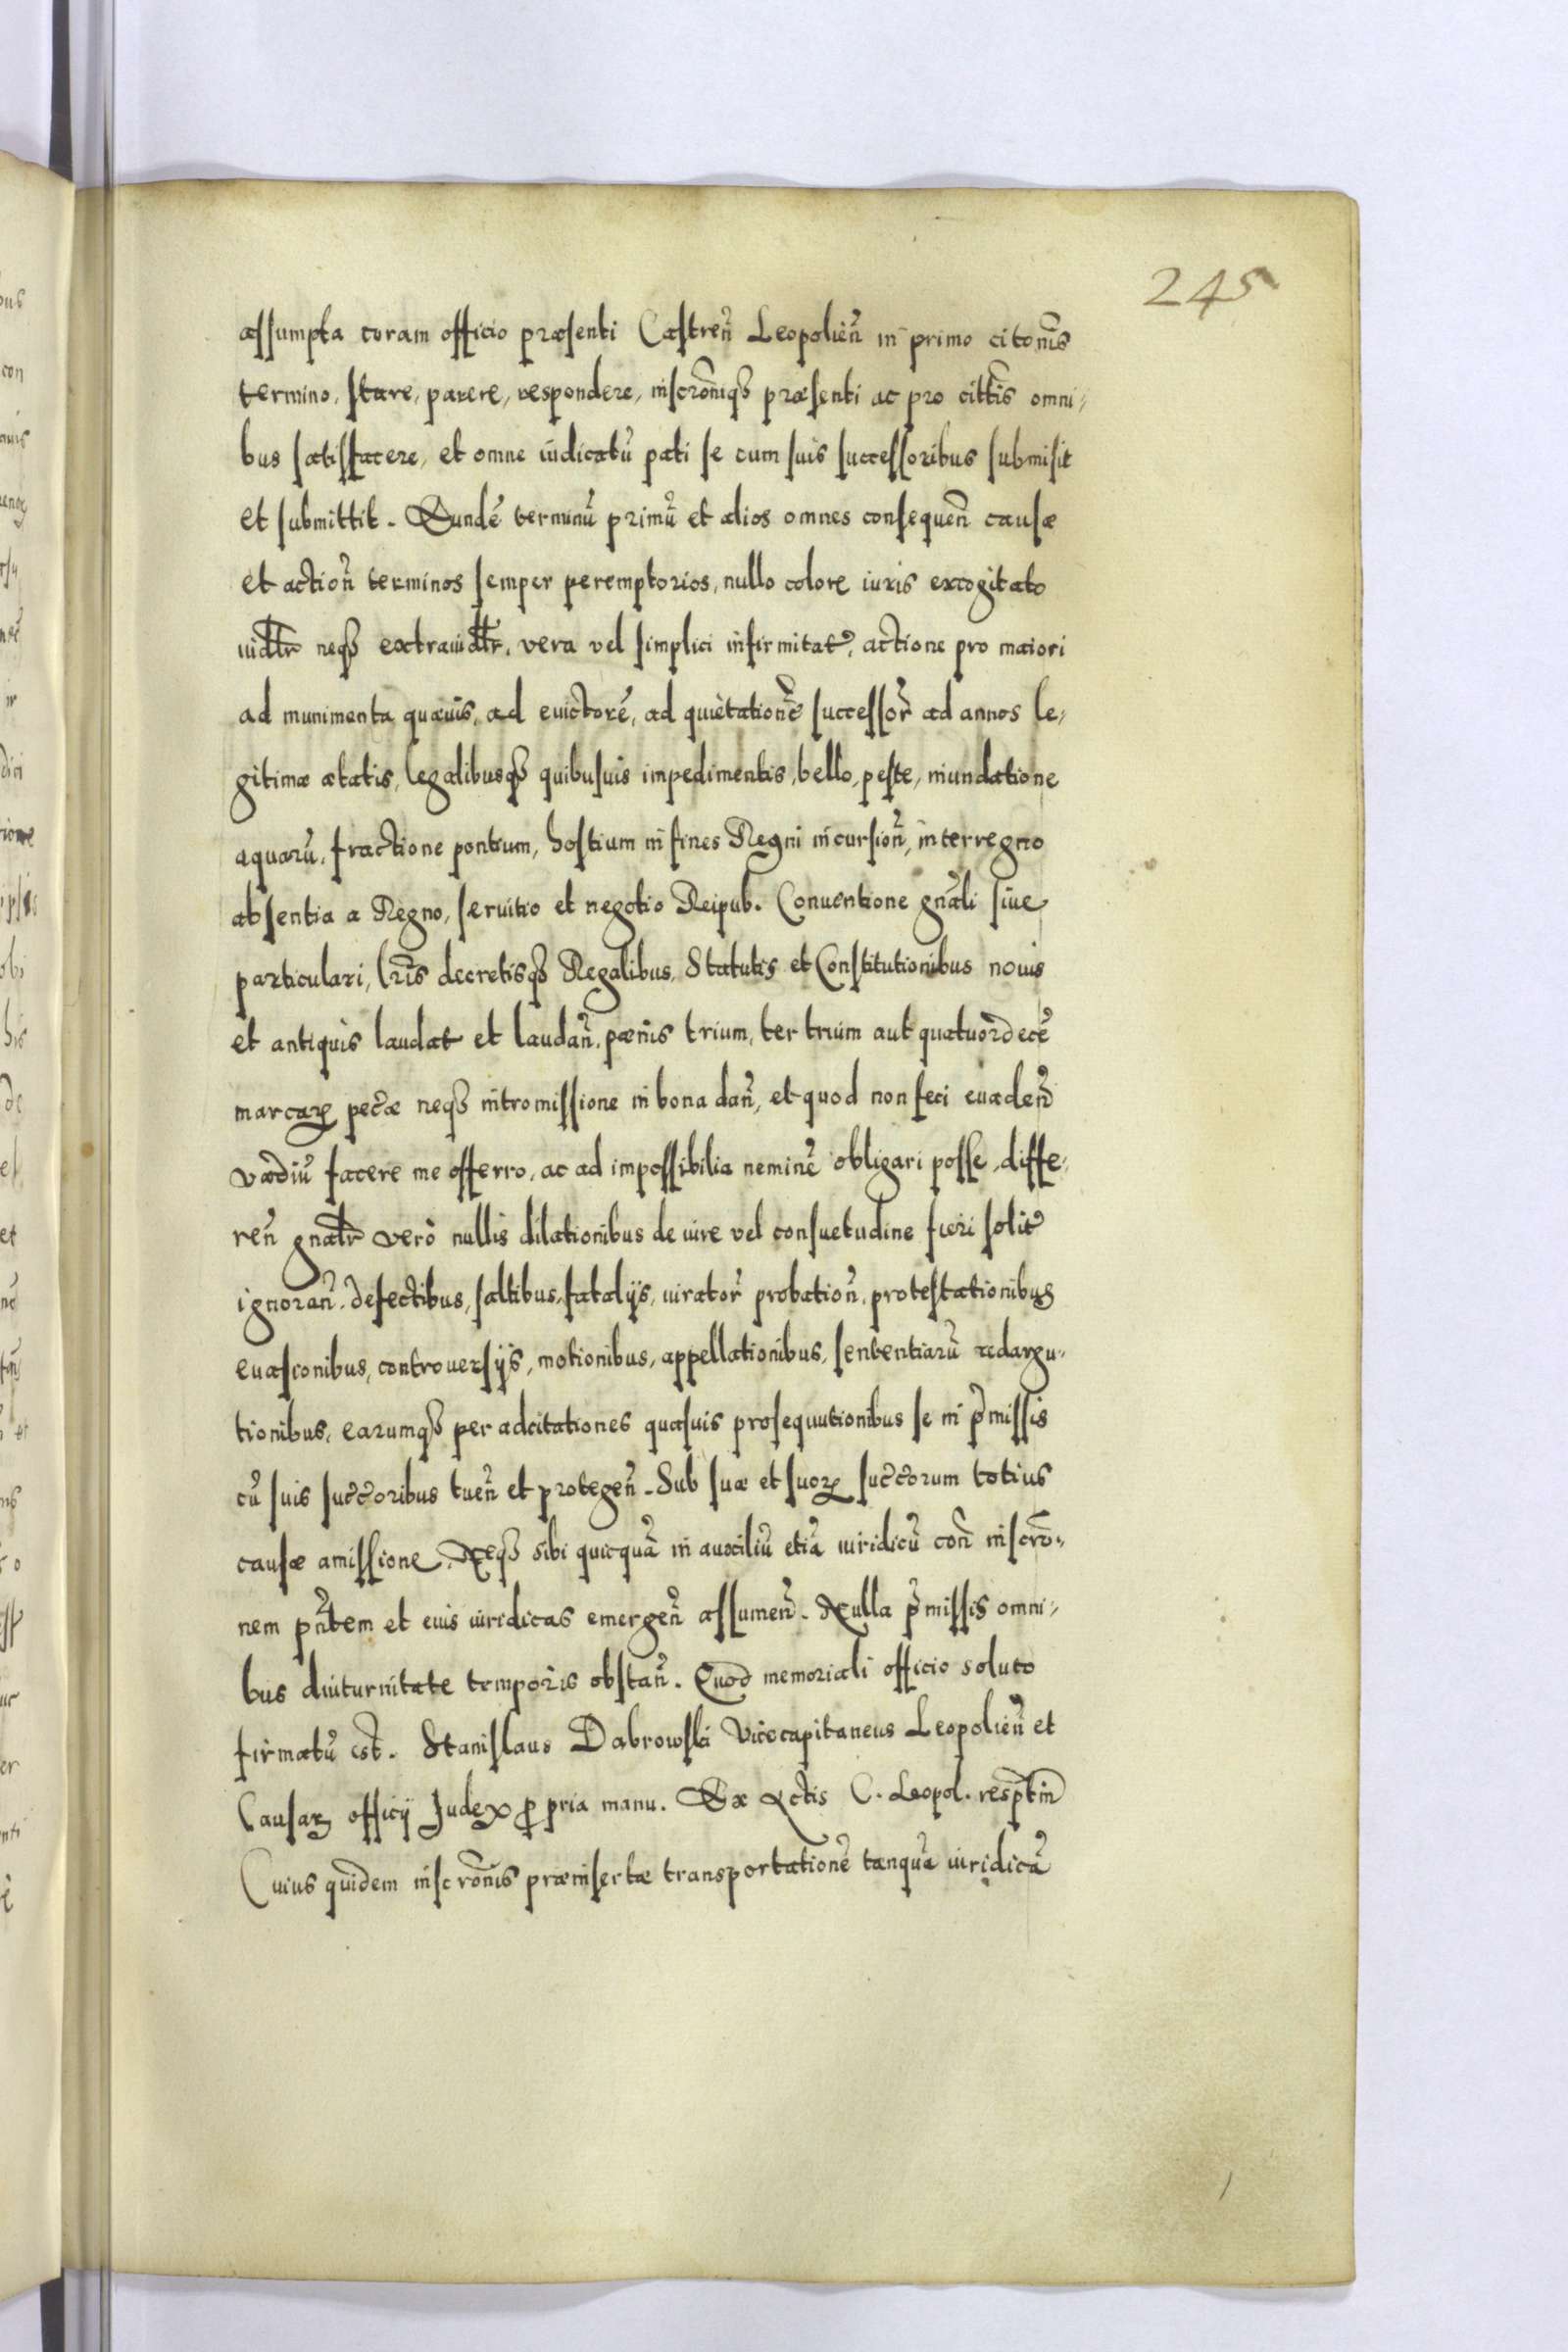 245
assumpta coram officio præsenti Castreñ Leopolieñ in primo citonis̃
termino, stare, parere, respondere, inscronīq₃ præsenti ac pro cittis̃ omni⸗
bus satisfacere, et omne iudicatū pati se cum suis successoribus submisit
et submittit. Eundē terminū primū et alios omnes consequeñ causæ
et actioñ terminos semper peremptorios, nullo colore iuris excogitato
iudłłr neq₃ extraiudłłr, vera vel simplici infirmitat̃, actione pro maiori
ad munimenta quævis, ad evictorē, ad quietationē successor̃ ad annos le⸗
gitimæ ætatis, legalibusq₃ quibusuis impedimentis, bello, peste, inundatione
aquarū, fractione pontium, hostium in fines Regni incursioñ, interregno
absentia a Regno, seruitio et negotio Reipub. Conuentione gnãli siue
particulari, Lris̃ decretisq₃ Regalibus, Statutis et Constitutionibus nouis
et antiquis laudat̃ et laudañ, pænis trium, ter trium aut quatuordecē
marcaꝝ pec̃æ neq₃ intromissione in bona dañ, et quod non feci euadeñ
vadiū facere me offerro, ac ad impossibilia neminē obligari posse, diffe⸗
reñ gnałr vero nullis dilationibus de iure vel consuetudine fieri solit̃
ignorañ, defectibus, saltibus, fatalijs, iurator̃ probatioñ, protestationibus
euasionibus, controuersijs, motionibus, appellationibus, sententiarū redargu⸗
tionibus, earumq₃ per adcitationes quasuis prosequutionibus se in p̃missis
cū suis succ̃oribus tueñ et protegeñ. Sub suæ et suoꝝ succ̃orum totius
causæ amissione. Neq₃ sibi quicquā in auxiliū etiā iuridicū coñ inscrõ⸗
nem pñtem et eius iuridicas emergeñ assumeñ. Nulla p̃missis omni⸗
bus diuturnitate temporis obstañ. Quod memoriali officio soluto
firmatū est. Stanislaus Dabrowski Vicecapitaneus Leopolieñ et
Causaꝝ officij Judex ꝓpria manu. Ex Actis C. Leopol. resptm̃
Cuius quidem inscrõnis præinsertæ transportationē tanquā iuridicā